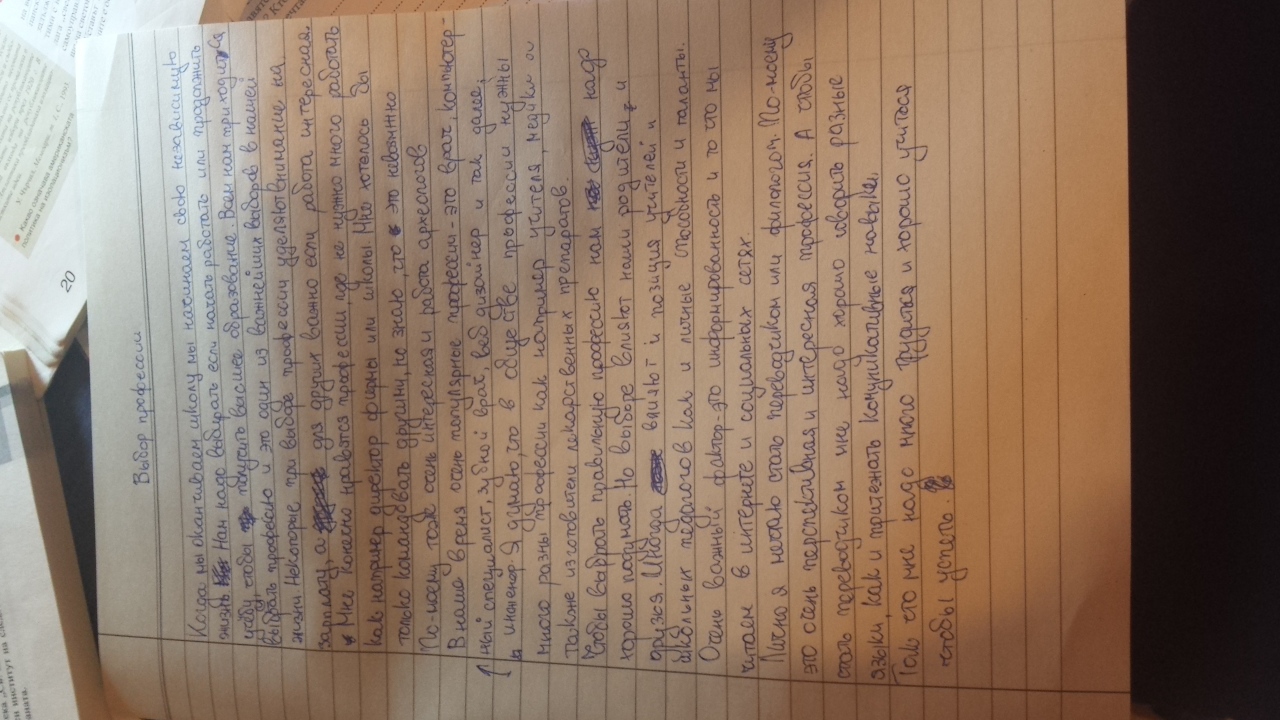 Выбор профессии
Когда мы оканчиваем школу мы начинаем свою независимую
жизнь Нам надо выбирать если начать работать или продолжить
учёбу, чтобы получить высшее образование. Всем нам приходится
выбрать профессию и это один из важнейших выборов в нашей
жизни. Некоторые при выборе профессии уделяют внимание на
зарплату, а для других важно если работа интересная.
Мне конечно нравятся профессии где не нужно много работать
как например директор фирмы или школы. Мне хотелось бы
только командовать другими, но знаю, что это невозможно
По-моему тоже очень интересная и работа археологов
В наше время очень популярные профессии - это врач, компьютер-
ный специалист, зубной врач, веб дизайнер и так далее,
и инженер. Я думаю, что в обществе профессии нужны
много разны профессии как например учителя, медики и
также изготовители лекарственных препаратов.
Чтобы выбрать правильную профессию нам надо
хорошо подумать. Но выборе влияют наши родители и
друзья. Иногда влияют и позиция учителей и
школьных педагогов как и личные способности и таланты.
Очень важный фактор-это информированность и то что мы
читаем в интернете и социальных сетях.
Лично я мечтаю стать переводчиком или филологом. По-моему
это очень перспективная и интересная профессия. А чтобы
стать переводчиком мне надо хорошо говорить разные
языки, как и притежать комуникативные навыки.
Так что мне надо много трудится и хорошо учиться
чтобы успеть.
20